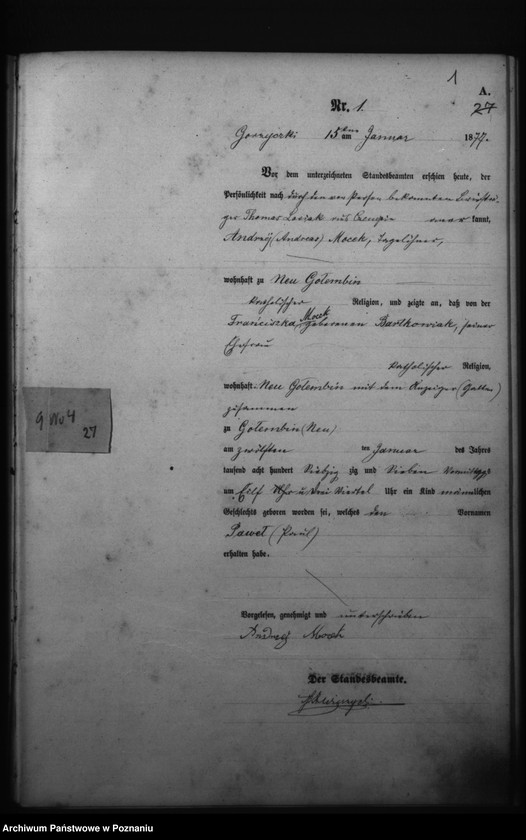 1
A.
27
Nr. 1.
am 15ten Januar 1877.
Vor dem unterzeichneten Standesbeamten erschien heute, der
Persönlichkeit nach durch den von Person bekannten
Thomas aus Czempin kannt,
Andrzej (Andreas) Mocek, Tagelöhner,
wohnhaft zu Neu Gołembin
katholischer Religion, und zeigte an, daß von der
Franciszka, Mocek geborenen Bartkowiak, seiner
Ehefrau
katholischer Religion,
wohnhaft Neu Gołembin mit dem Anzeiger (Gatten)
zusammen
zu Gołembin (Neu)
am zwölften ten Januar des Jahres
tausend acht hundert Siebzig zig und Sieben Vormittags
um Eilf Uhr u drei Viertel Uhr ein Kind männlichen
Geschlechts geboren worden sei, welches den Vornamen
Paweł (Paul)
erhalten habe.
Vorgelesen, genehmigt und unterschrieben
Andrzej Mocek
Der Standesbeamte.
9 No 4
27
Archiwum Państwowe w Poznaniu